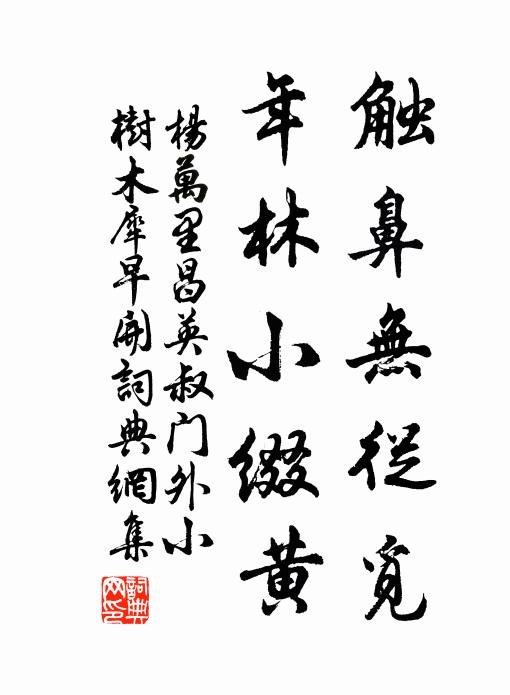 触鼻無從覓
年林小綴黄
楊萬里昌英叔门外小
樹木犀早開詞典網集
詞典网印